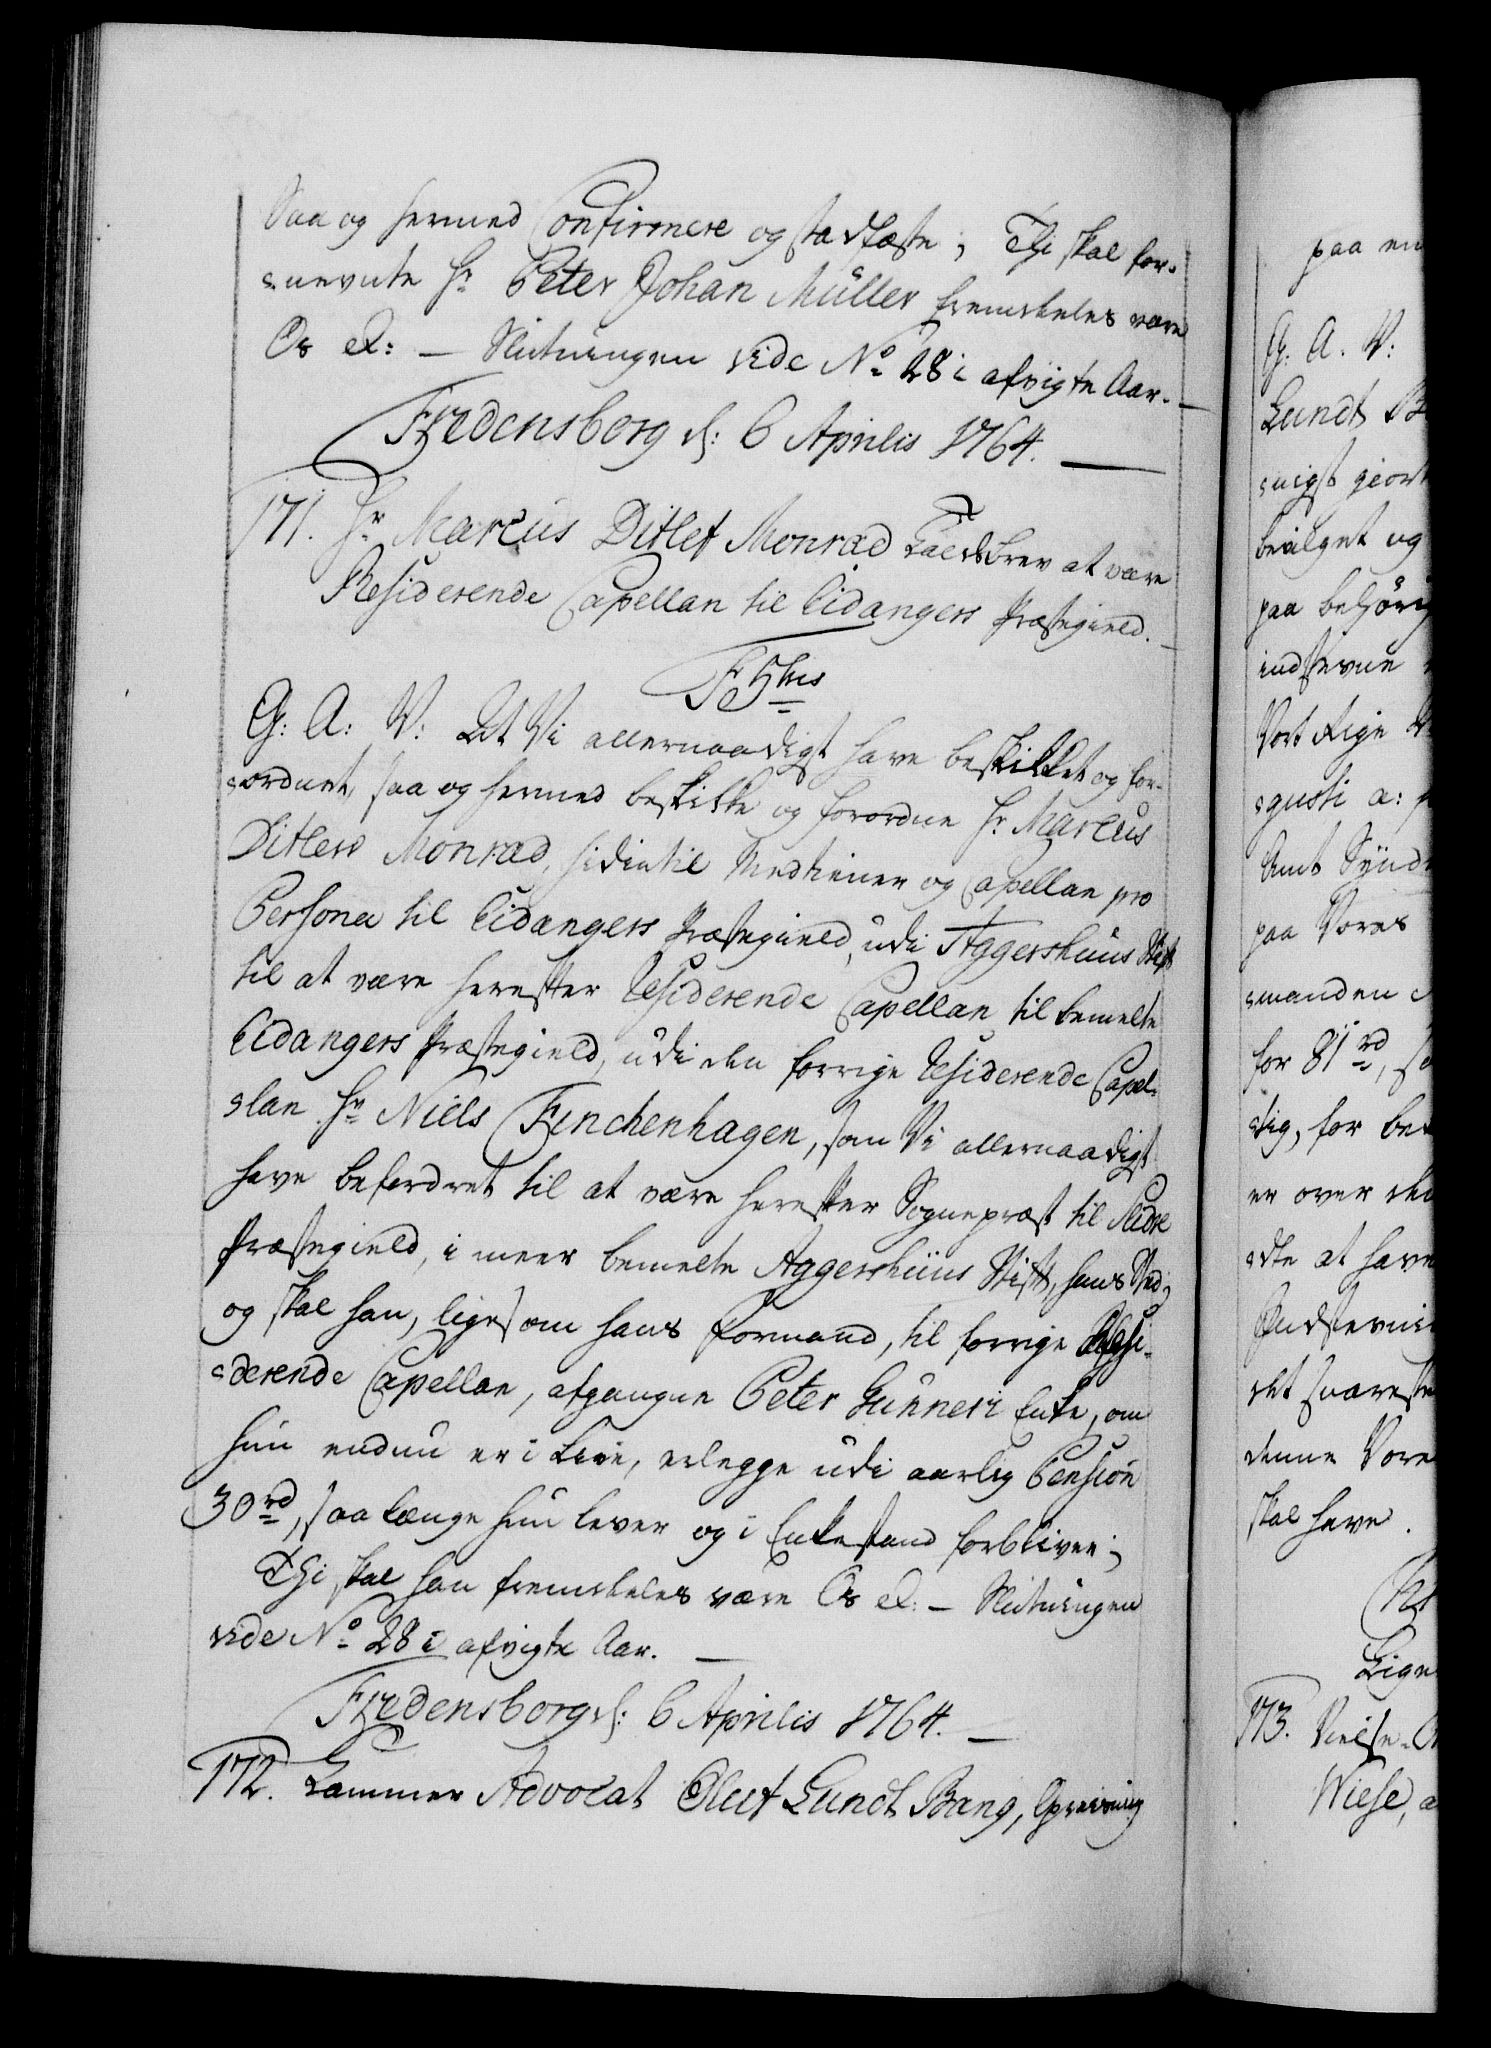 Saa og hermed Confirmere og stadfæste; Thi skal for-
nevnte Hr Peter Johan Müller fremdeles være
Os &: — Slutningen vide No 28 i afvigte Aar. —
Fredensborg d: 6 Aprilis 1764. —
171. Hr Marcus Ditlef Monrad Kaldsbrev at være
Residerende Capellan til Eidangers Præstegield. —
F 5tus
G: A: V: At Vi allernaadigst have beskikket og for-
ordnet, saa og hermed beskikke og forordne Hr Marcus
Ditlew Monrad, hidintil Medtiener og Capellan pro
Persona til Eidangers Præstegield, udi Aggershuus Stift
til at være herefter Residerende Capellan til bemelte
Eidangers Præstegield, udi den forrige Residerende Capel-
lan Hr Niels Finchenhagen, som Vi allernaadigst
have befordret til at være herefter Sognepræst til Slidre
Præstegield, i meer bemelte Aggershuus Stift, hans Sted;
og skal han, ligesom hans Formand, til forrige Resi-
derende Capellan, afgangne Peter Gunneri Enke, om
hun endnu er i Live, erlegge udi aarlig Pension
30 rd, saa længe hun lever og i Enkestand forbliver;
Thi skal han fremdeles være Os &: — Slutningen
vide No 28 i afvigte Aar. —
Fredensborg d: 6 Aprilis 1764. —
172. Kammer Advocat Oluf Lundt Bang, Opreisning
paa en
G. A. V:
Lundt B
nigst giort
bevilget og
paa behörig
indstevne
Vort Rige
gusti a:
Amt
paa Vores
manden
for 81 rd,
dig, for be
er over
dte at have
Indstevni
det snareste
denne Vore
skal have.
173.
Wiese, a